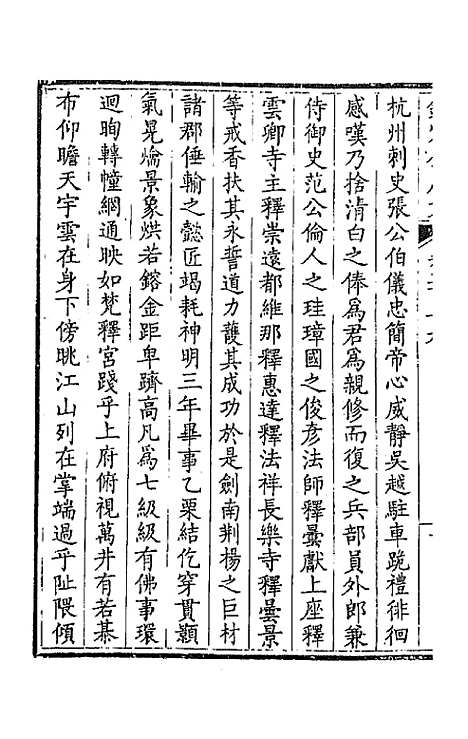 杭州刺史張公伯儀忠簡帝心威靜吳越駐車跪禮徘徊
感嘆乃捨清白之俸爲君爲親修而復之兵部員外郎兼
侍御史范公倫人之珪璋國之俊彥法師釋曇獻上座釋
雲卿寺主釋崇遠都維那釋惠達釋法祥長樂寺釋曇景
等戒香扶其永誓道力護其成功於是劍南荆楊之巨材
諸郡倕輸之懿匠竭耗神明三年畢事乙栗結仡穿貫顥
氣晃爚景象烘若鎔金距卑躋高凡爲七級級有佛事環
迴晌轉幢網通映如梵釋宮踐乎上府俯視萬井有若棊
布仰瞻天宇雲在身下傍眺江山列在掌端過乎阯隈傾